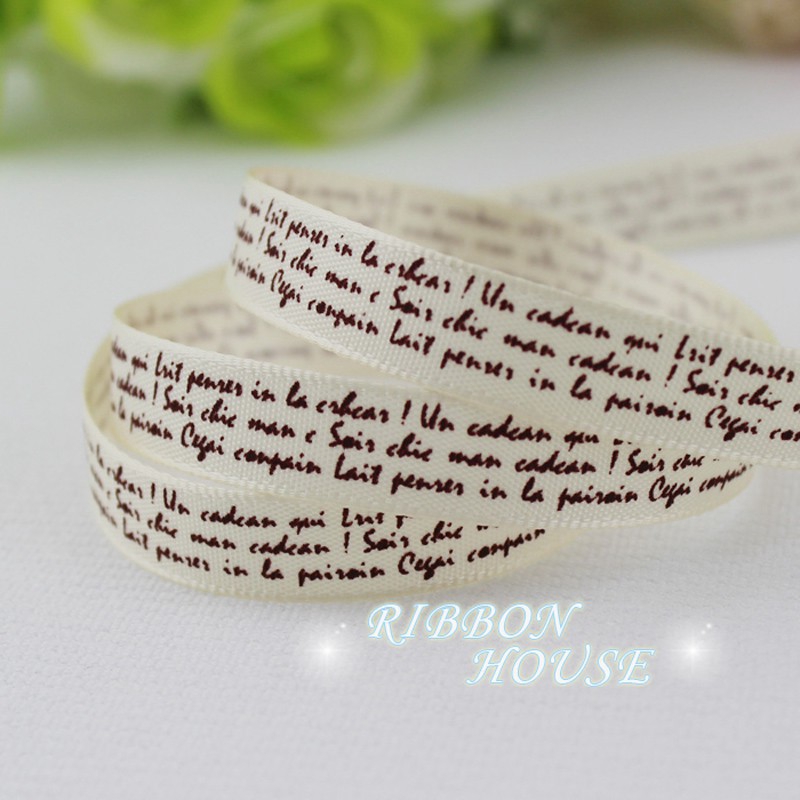 qui Lrit penser in la crhear ! Un cadean qui Lrit penser
cadean ! Soir chic man c Soir chic man cadean ! Soir chic
Cegai conpain Lait penser in la pairoin Cegai con
qui Lrit penser in la crhear ! Un cadean qu
cadean ! Soir chic man c Soir chic man cadean ! Soir chic
Cegai conpain Lait penser in la pairoin Cegai conpain
crhear ! Un cadean qui Lrit
Soir chic man cadean ! Soir chic
Lait penser in la pairoin Cegai conpain
RIBBON
HOUSE